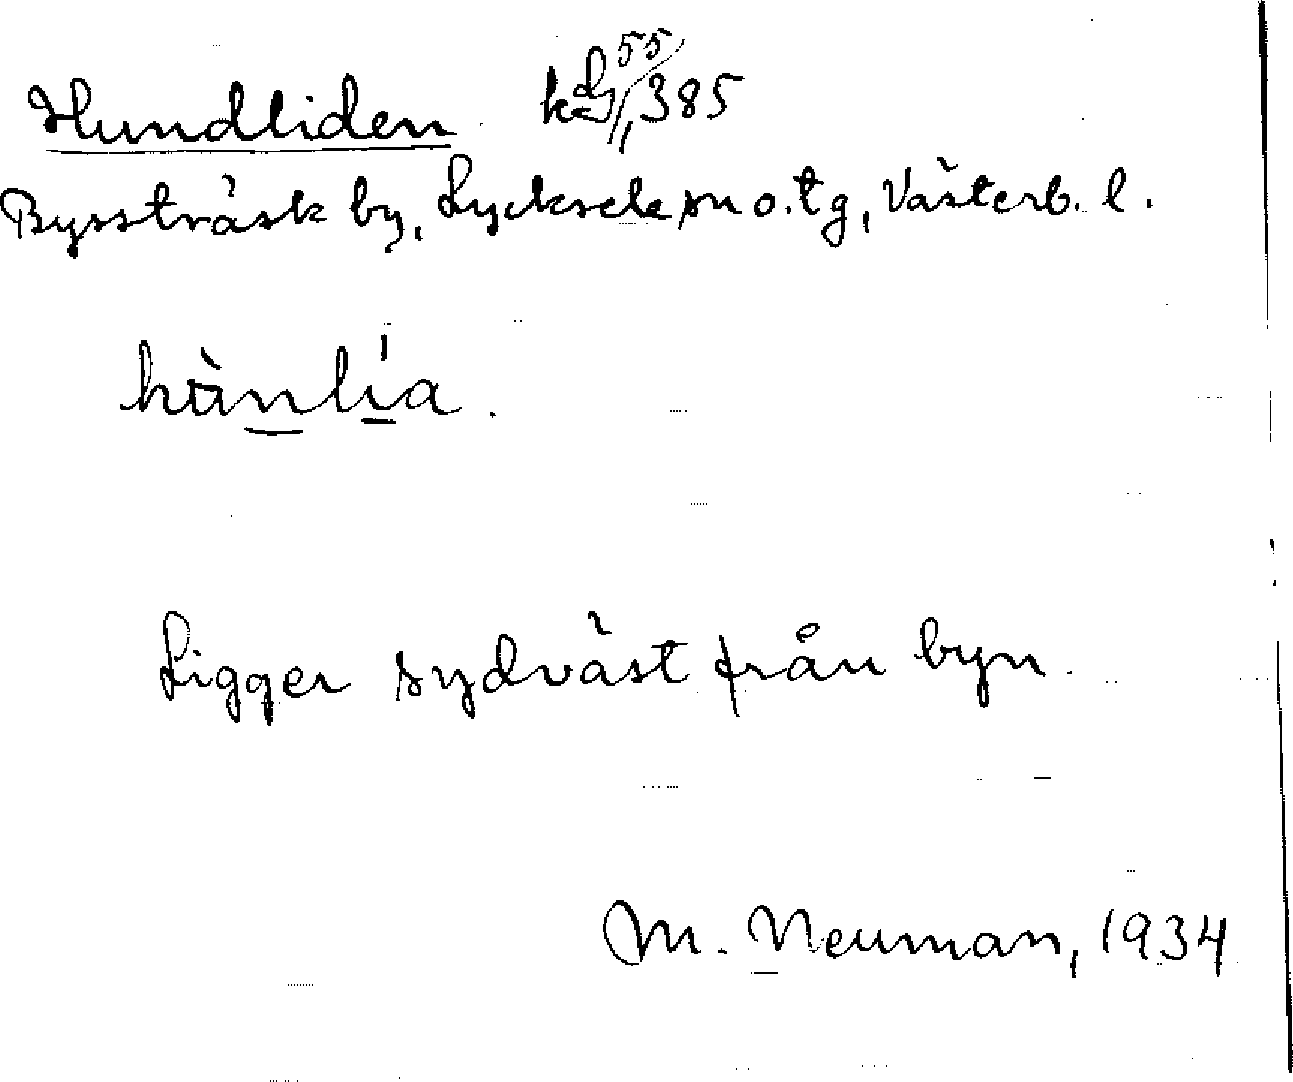 Hundliden 55/385
Byssträsk by, Lycksele sn o. tg, Västerb. l.
hùnlía.
Ligger sydväst från byn.
M. Neuman, 1934